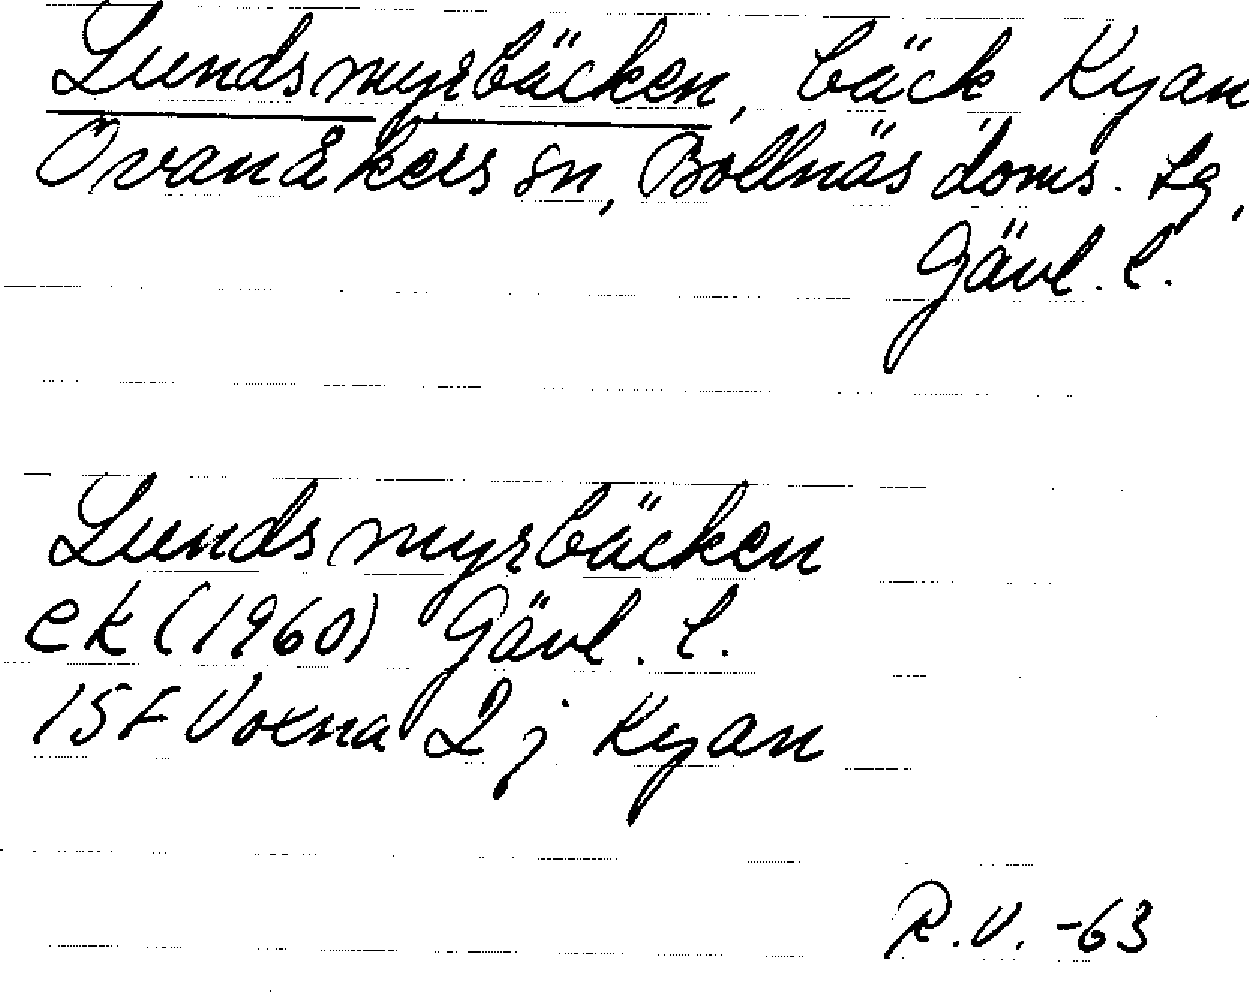 Lundsmyrbäcken, bäck Kyan
Ovanåkers sn, Bollnäs doms. tg,
Gävl. l.
Lundsmyrbäcken
ek (1960) Gävl. l.
15F Voxna 2 j Kyan
R.V. -63